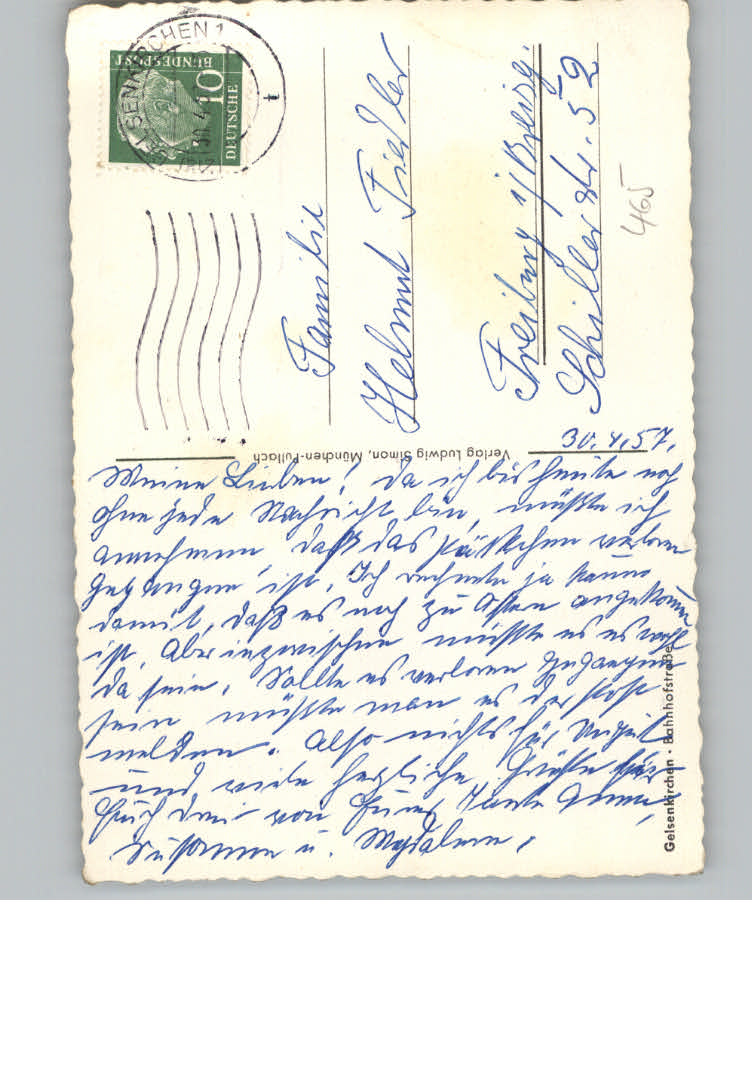 GELSENKIRCHEN 1
30. 4.
t
DEUTSCHE
BUNDESPOST
10
Familie
Helmut Fiedler
Freiburg i/Breisg.
Schillerstr. 52
465
Verlag Ludwig Simon, München-Pullach
30.4.57.
Meine Lieben! Da ich bis heute noch
ohne jede Nachricht bin, müßte ich
annehmen, daß das Päckchen verloren
gegangen ist. Ich rechnete ja kaum
damit, daß es noch zu Ostern angekommen
ist. Aber inzwischen müsste es es wohl
da sein. Sollte es verloren gegangen
sein müßte man es der Post
melden. Also nichts für Ungut
und viele herzliche Grüße für
Euch drei von Eurer Tante
Susanne u. Magdalena.
Gelsenkirchen · Bahnhofstraße